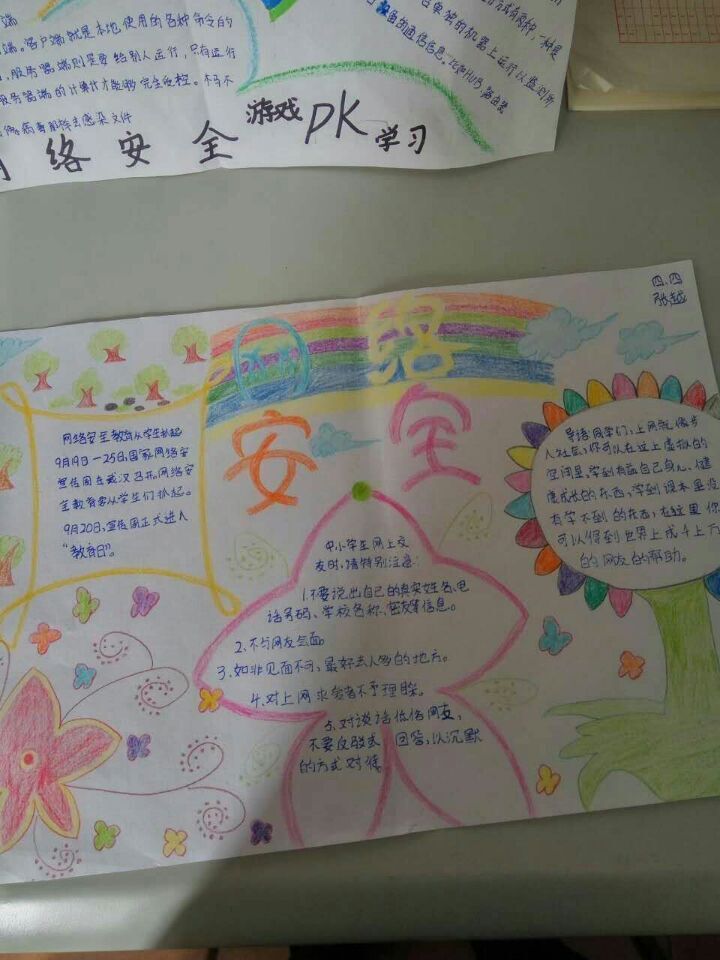 端。客户端就是本地使用的各种命令的
服务器端则是要给别人运行，只有运行
服务器端的计算计才能够完全受控。木马不
络安全游戏PK学习
四、四
张越
网络
安全
网络安全教育从学生抓起
9月19日—25日，国家网络安
宣传周在武汉召开，网络安
全教育要从学生们抓起。
9月20日，宣传周正式进入
“教育日”。
中小学生网上交
友时，请特别注意：
1.不要说出自己的真实姓名、电
话号码、学校名称、密友等信息。
2、不与网友会面。
3、如非见面不可，最好去人多的地方。
4、对上网求爱者不予理睬。
5、对谈话低俗网友，
不要反驳或回答，以沉默
的方式对待
导语：同学们，上网就像步
入社会，你可以在这上虚拟的
空间里，学到有益自己身心健
康成长的东西，学到课本里没
有学不到的东西，在这里你
可以得到世界上成千上万
的网友的帮助。